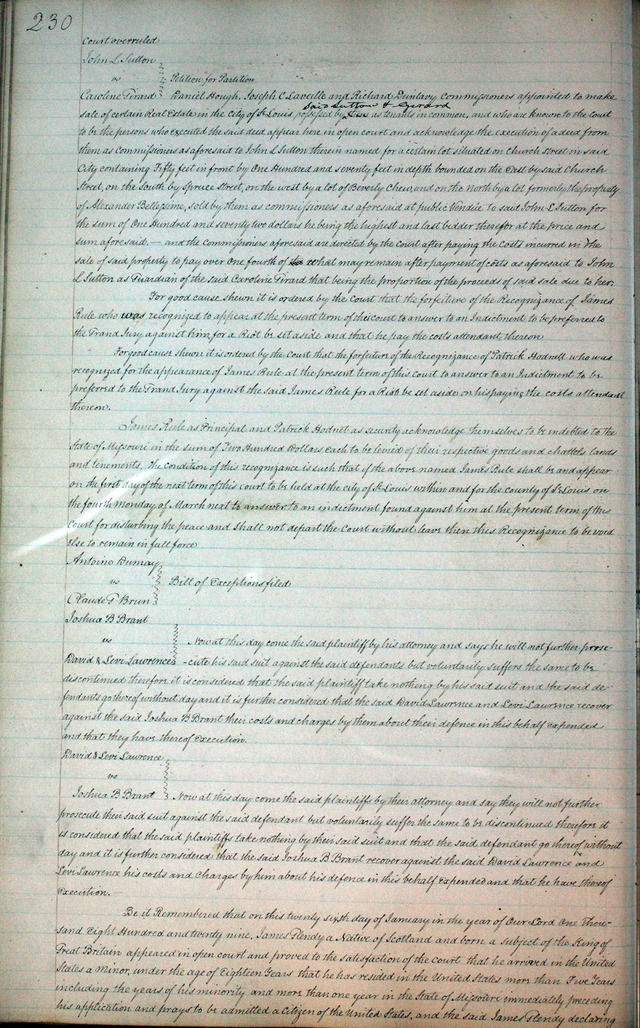 230
Court overruled
John L Sutton
vs } Petition for Partition
Caroline Girard Daniel Hough, Joseph C Laveille and Richard Dunlavy Commissioners appointed to make
said Sutton & Girard
sale of certain Real Estate in the City of St Louis possessed by as tenants in common, and who are known to the Court
to be the persons who executed the said deed appear here in open court and acknowledge the execution of a deed from
them as Commissioners as aforesaid to John L Sutton therein named for a certain lot situated on Church Street in said
City containing Fifty feet in front by One Hundred and seventy feet in depth bounded on the East by said Church
Street, on the South by Spruce Street, on the west by a lot of Beverly Chew, and on the north by a lot formerly the property
of Alexander Bellissime, sold by them as commissioners as aforesaid at public Vendue to said John L Sutton for
the sum of One Hundred and seventy two dollars he being the highest and last bidder therefor at the price and
sum aforesaid. — and the Commissioners aforesaid are directed by the Court after paying the costs incurred in the
sale of said property to pay over One fourth of what may remain after payment of costs as aforesaid to John
L Sutton as Guardian of the said Caroline Girard that being the proportion of the proceeds of said sale due to her.
For good cause shewn it is ordered by the Court that the forfeiture of the Recognizance of James
Rule who was recognized to appear at the present term of this court to answer to an Indictment to be preferred to
the Grand Jury against him for a Riot be set aside and that he pay the costs attendant thereon
For good cause shewn it is ordered by the Court that the forfeiture of the Recognizance of Patrick Hodnett who was
recognized for the appearance of James Rule at the present term of this court to answer to an Indictment to be
preferred to the Grand Jury against the said James Rule for a Riot be set aside on his paying the costs attendant
thereon.
James Rule as Principal and Patrick Hodnet as security acknowledge themselves to be indebted to the
State of Missouri in the sum of Two Hundred Dollars each to be levied of their respective goods and chattels lands
and tenements. The Condition of this recognizance is such that if the above named James Rule shall be and appear
on the first day of the next term of this court to be held at the city of St Louis within and for the county of St Louis on
the fourth Monday of March next to answer to an indictment found against him at the present term of this
Court for disturbing the peace and shall not depart the Court without leave then this Recognizance to be void
else to remain in full force
Antoine Dumay
vs } Bill of Exceptions filed
Claude F Brun
Joshua B Brant
vs } Now at this day come the said plaintiff by his attorney and says he will not further prose-
David & Levi Lawrence cute his said suit against the said defendants but voluntarily suffers the same to be
discontinued therefore it is considered that the said plaintiff take nothing by his said suit and the said de-
fendants go thereof without day and it is further considered that the said David Lawrence and Levi Lawrence recover
against the said Joshua B Brant their costs and charges by them about their defence in this behalf expended
and that they have thereof Execution.
David & Levi Lawrence
vs
Joshua B Brant } Now at this day come the said plaintiffs by their attorney and say they will not further
prosecute their said suit against the said defendant but voluntarily suffer the same to be discontinued therefore it
is considered that the said plaintiffs take nothing by their said suit and that the said defendant go thereof without
day and it is further considered that the said Joshua B Brant recover against the said David Lawrence and
Levi Lawrence his costs and charges by him about his defence in this behalf expended and that he have thereof
Execution.
Be it Remembered that on this twenty sixth day of January in the year of Our Lord One Thou-
sand Eight Hundred and twenty nine, James Plendy a Native of Scotland and born a Subject of the King of
Great Britain appeared in open court and proved to the satisfaction of the Court that he arrived in the United
States a Minor, under the age of Eighteen Years that he has resided in the United States more than Five Years
including the years of his minority and more than one year in the State of Missouri immediately preceding
his application and prays to be admitted a Citizen of the United States, and the said James Plendy declaring